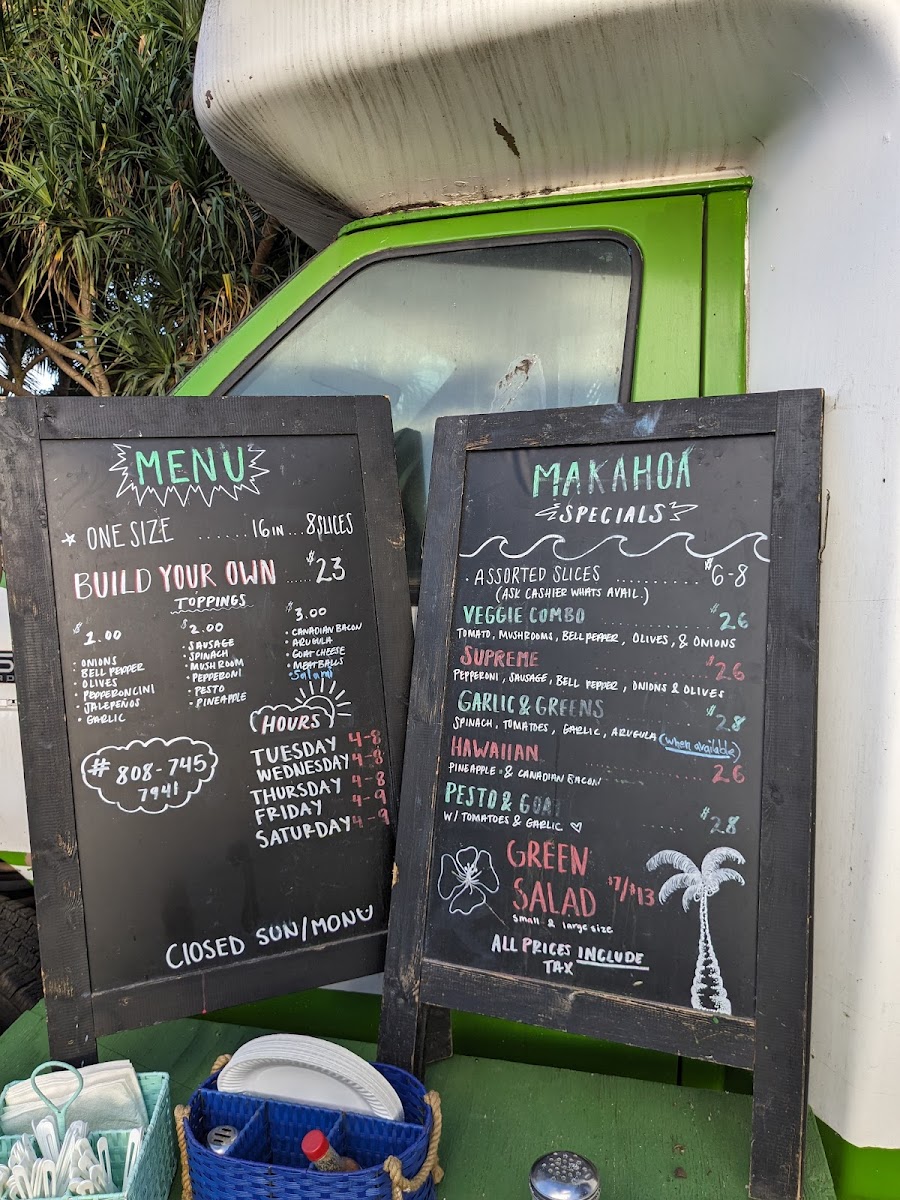 MENU
* ONE SIZE ...... 16 IN... 8 SLICES
BUILD YOUR OWN ..... $23
TOPPINGS
$1.00
• ONIONS
• BELL PEPPER
• OLIVES
• PEPPERONCINI
• JALEPEÑOS
• GARLIC
$2.00
• SAUSAGE
• SPINACH
• MUSHROOM
• PEPPERONI
• PESTO
• PINEAPPLE
$3.00
• CANADIAN BACON
• ARUGULA
• GOAT CHEESE
• MEATBALLS
• Salami
HOURS
TUESDAY 4-8
WEDNESDAY 4-8
THURSDAY 4-8
FRIDAY 4-9
SATURDAY 4-9
# 808-745
7941
CLOSED SUN/MON
MAKAHOA
SPECIALS
• ASSORTED SLICES .......... $6-8
(ASK CASHIER WHATS AVAIL.)
VEGGIE COMBO .......... $26
TOMATO, MUSHROOMS, BELL PEPPER, OLIVES, & ONIONS
SUPREME .......... $26
PEPPERONI, SAUSAGE, BELL PEPPER, ONIONS & OLIVES
GARLIC & GREENS .......... $28
SPINACH, TOMATOES, GARLIC, ARUGULA (when available)
HAWAIIAN .......... 26
PINEAPPLE & CANADIAN BACON
PESTO & GOAT
W/ TOMATOES & GARLIC ♡ ..... $28
GREEN
SALAD $7/$13
small & large size
ALL PRICES INCLUDE
TAX